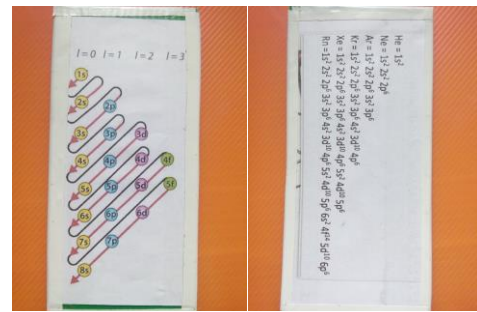 l=0 l=1 l=2 l=3
1s
2s 2p
3s 3p 3d
4s 4p 4d 4f
5s 5p 5d 5f
6s 6p 6d
7s 7p
8s
He = 1s²
Ne = 1s² 2s² 2p⁶
Ar = 1s² 2s² 2p⁶ 3s² 3p⁶
Kr = 1s² 2s² 2p⁶ 3s² 3p⁶ 4s² 3d¹⁰ 4p⁶
Xe = 1s² 2s² 2p⁶ 3s² 3p⁶ 4s² 3d¹⁰ 4p⁶ 5s² 4d¹⁰ 5p⁶
Rn = 1s² 2s² 2p⁶ 3s² 3p⁶ 4s² 3d¹⁰ 4p⁶ 5s² 4d¹⁰ 5p⁶ 6s² 4f¹⁴ 5d¹⁰ 6p⁶